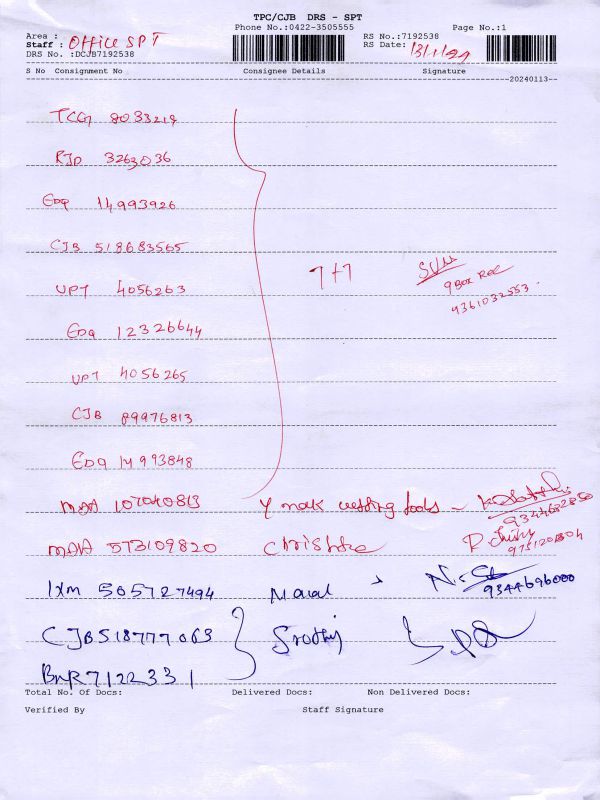 TPC/CJB DRS - SPT
Phone No.:0422-3505555 Page No.:1
Area : RS No.:7192538
Staff : OFFice SPT RS Date: 13/1/24
DRS No. :DCJB7192538
S No Consignment No Consignee Details Signature
20240113
TCG 8033219
RJD 3263036
EDQ 14993926
CJB 518683565
UPT 4056263 7+7 SVM
9 Box Rec
9361032553
EDQ 12326644
UPT 4056265
CJB 89976813
EDQ 14993848
MAA 107040813 Y mak cutting tools
9344682850
MAA 573109820 Christhe
9751201304
IXM 505727494
9344696000
CJB 518777063
BNR 7122331
Total No. Of Docs: Delivered Docs: Non Delivered Docs:
Verified By Staff Signature